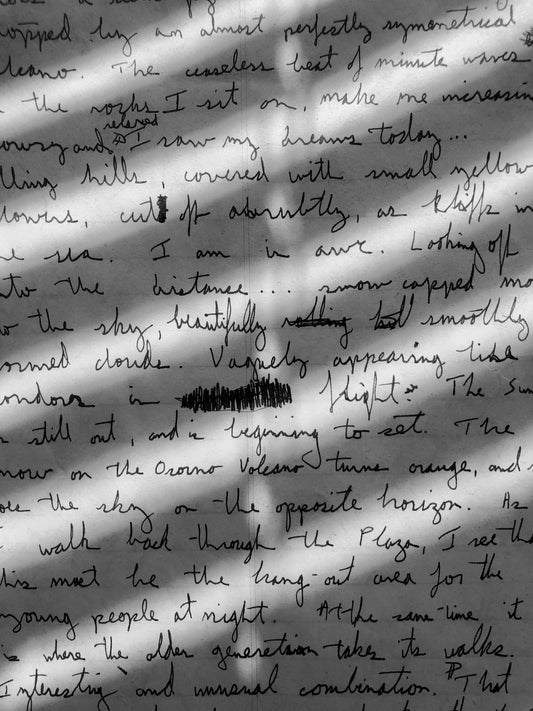 topped by an almost perfectly symmetrical
The ceaseless beat of minute waves
the rocks I sit on, make me increasin
and relaxed I saw my dreams today...
lling hills, covered with small yellow
lowers, cut off abruptly, as cliffs in
sea. I am in awe. Looking off
nto the distance... snow capped mo
the sky, beautifully smoothly
ormed clouds. Vaguely appearing like
ondors in flight. The Sun
still out, and is beginning to set. The
now on the Osorno Volcano turns orange, and s
the sky on the opposite horizon. As
walk back through the Plaza, I see tha
his must be the hang-out area for the
young people at night. At the same time it
is where the older generation takes its walks.
Interesting and unusual combination. That